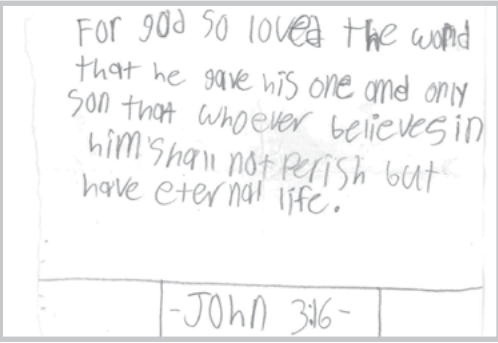 For god so loved the world
that he gave his one and only
son that whoever believes in
him shall not perish but
have eternal life.
-JOhn 3:16-